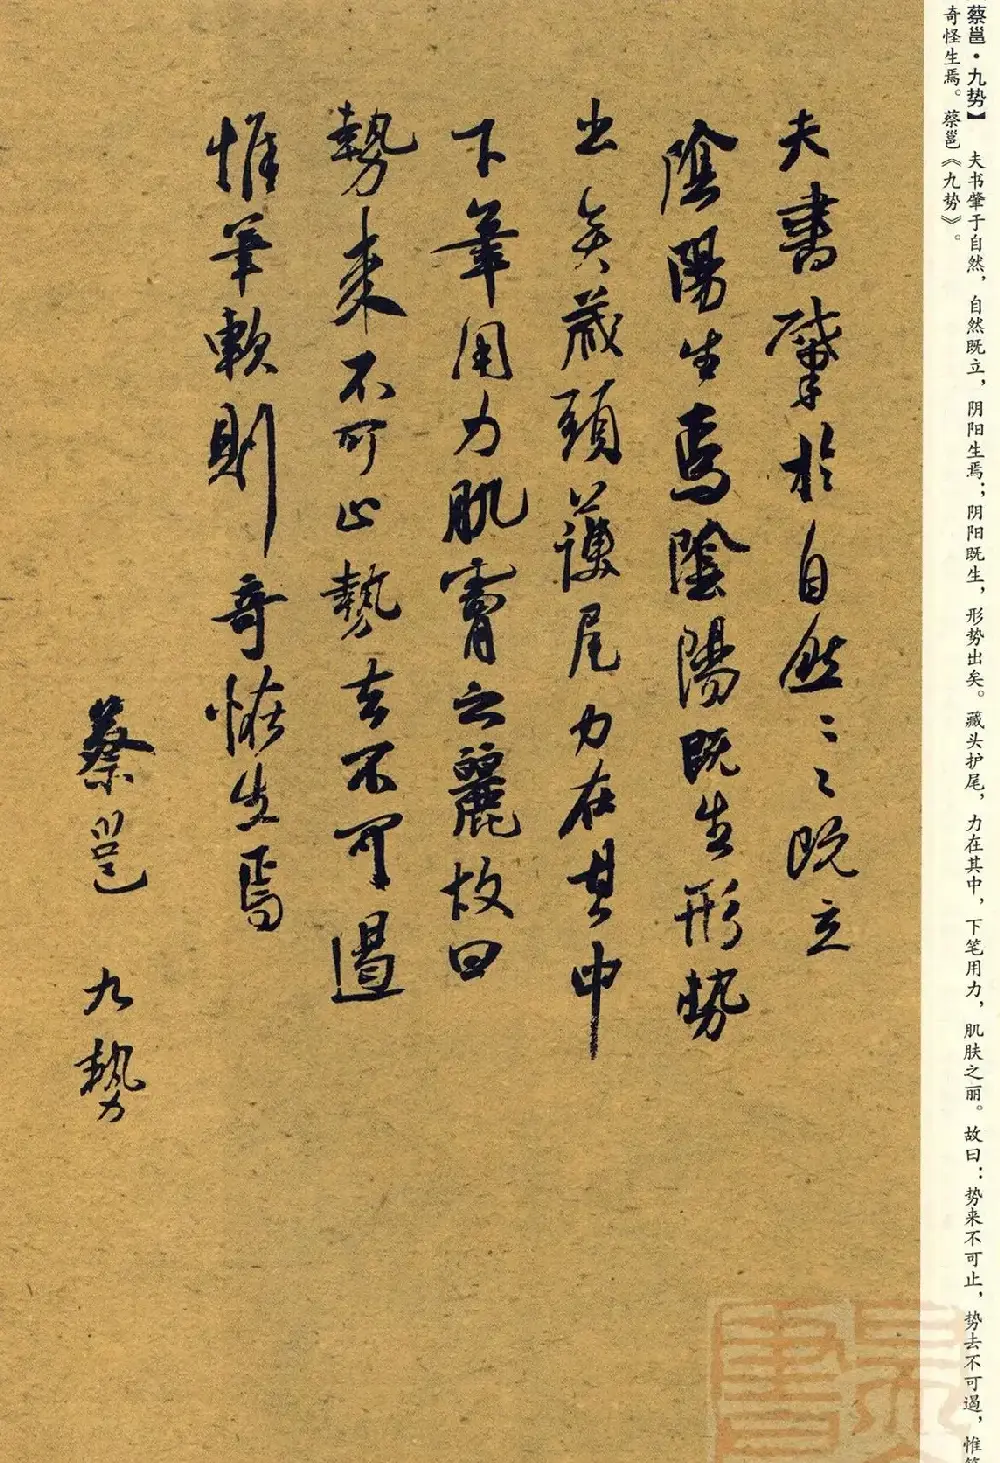 蔡邕·九势】 夫书肇于自然，自然既立，阴阳生焉；阴阳既生，形势出矣。藏头护尾，力在其中，下笔用力，肌肤之丽。故曰：势来不可止，势去不可遏，惟笔
奇怪生焉。蔡邕《九势》。
夫書肇於自然〻〻既立
陰陽生焉陰陽既生形勢
出矣藏頭護尾力在其中
下筆用力肌膚之麗故曰
勢来不可止勢去不可遏
惟筆軟則奇怪生焉
蔡邕 九勢